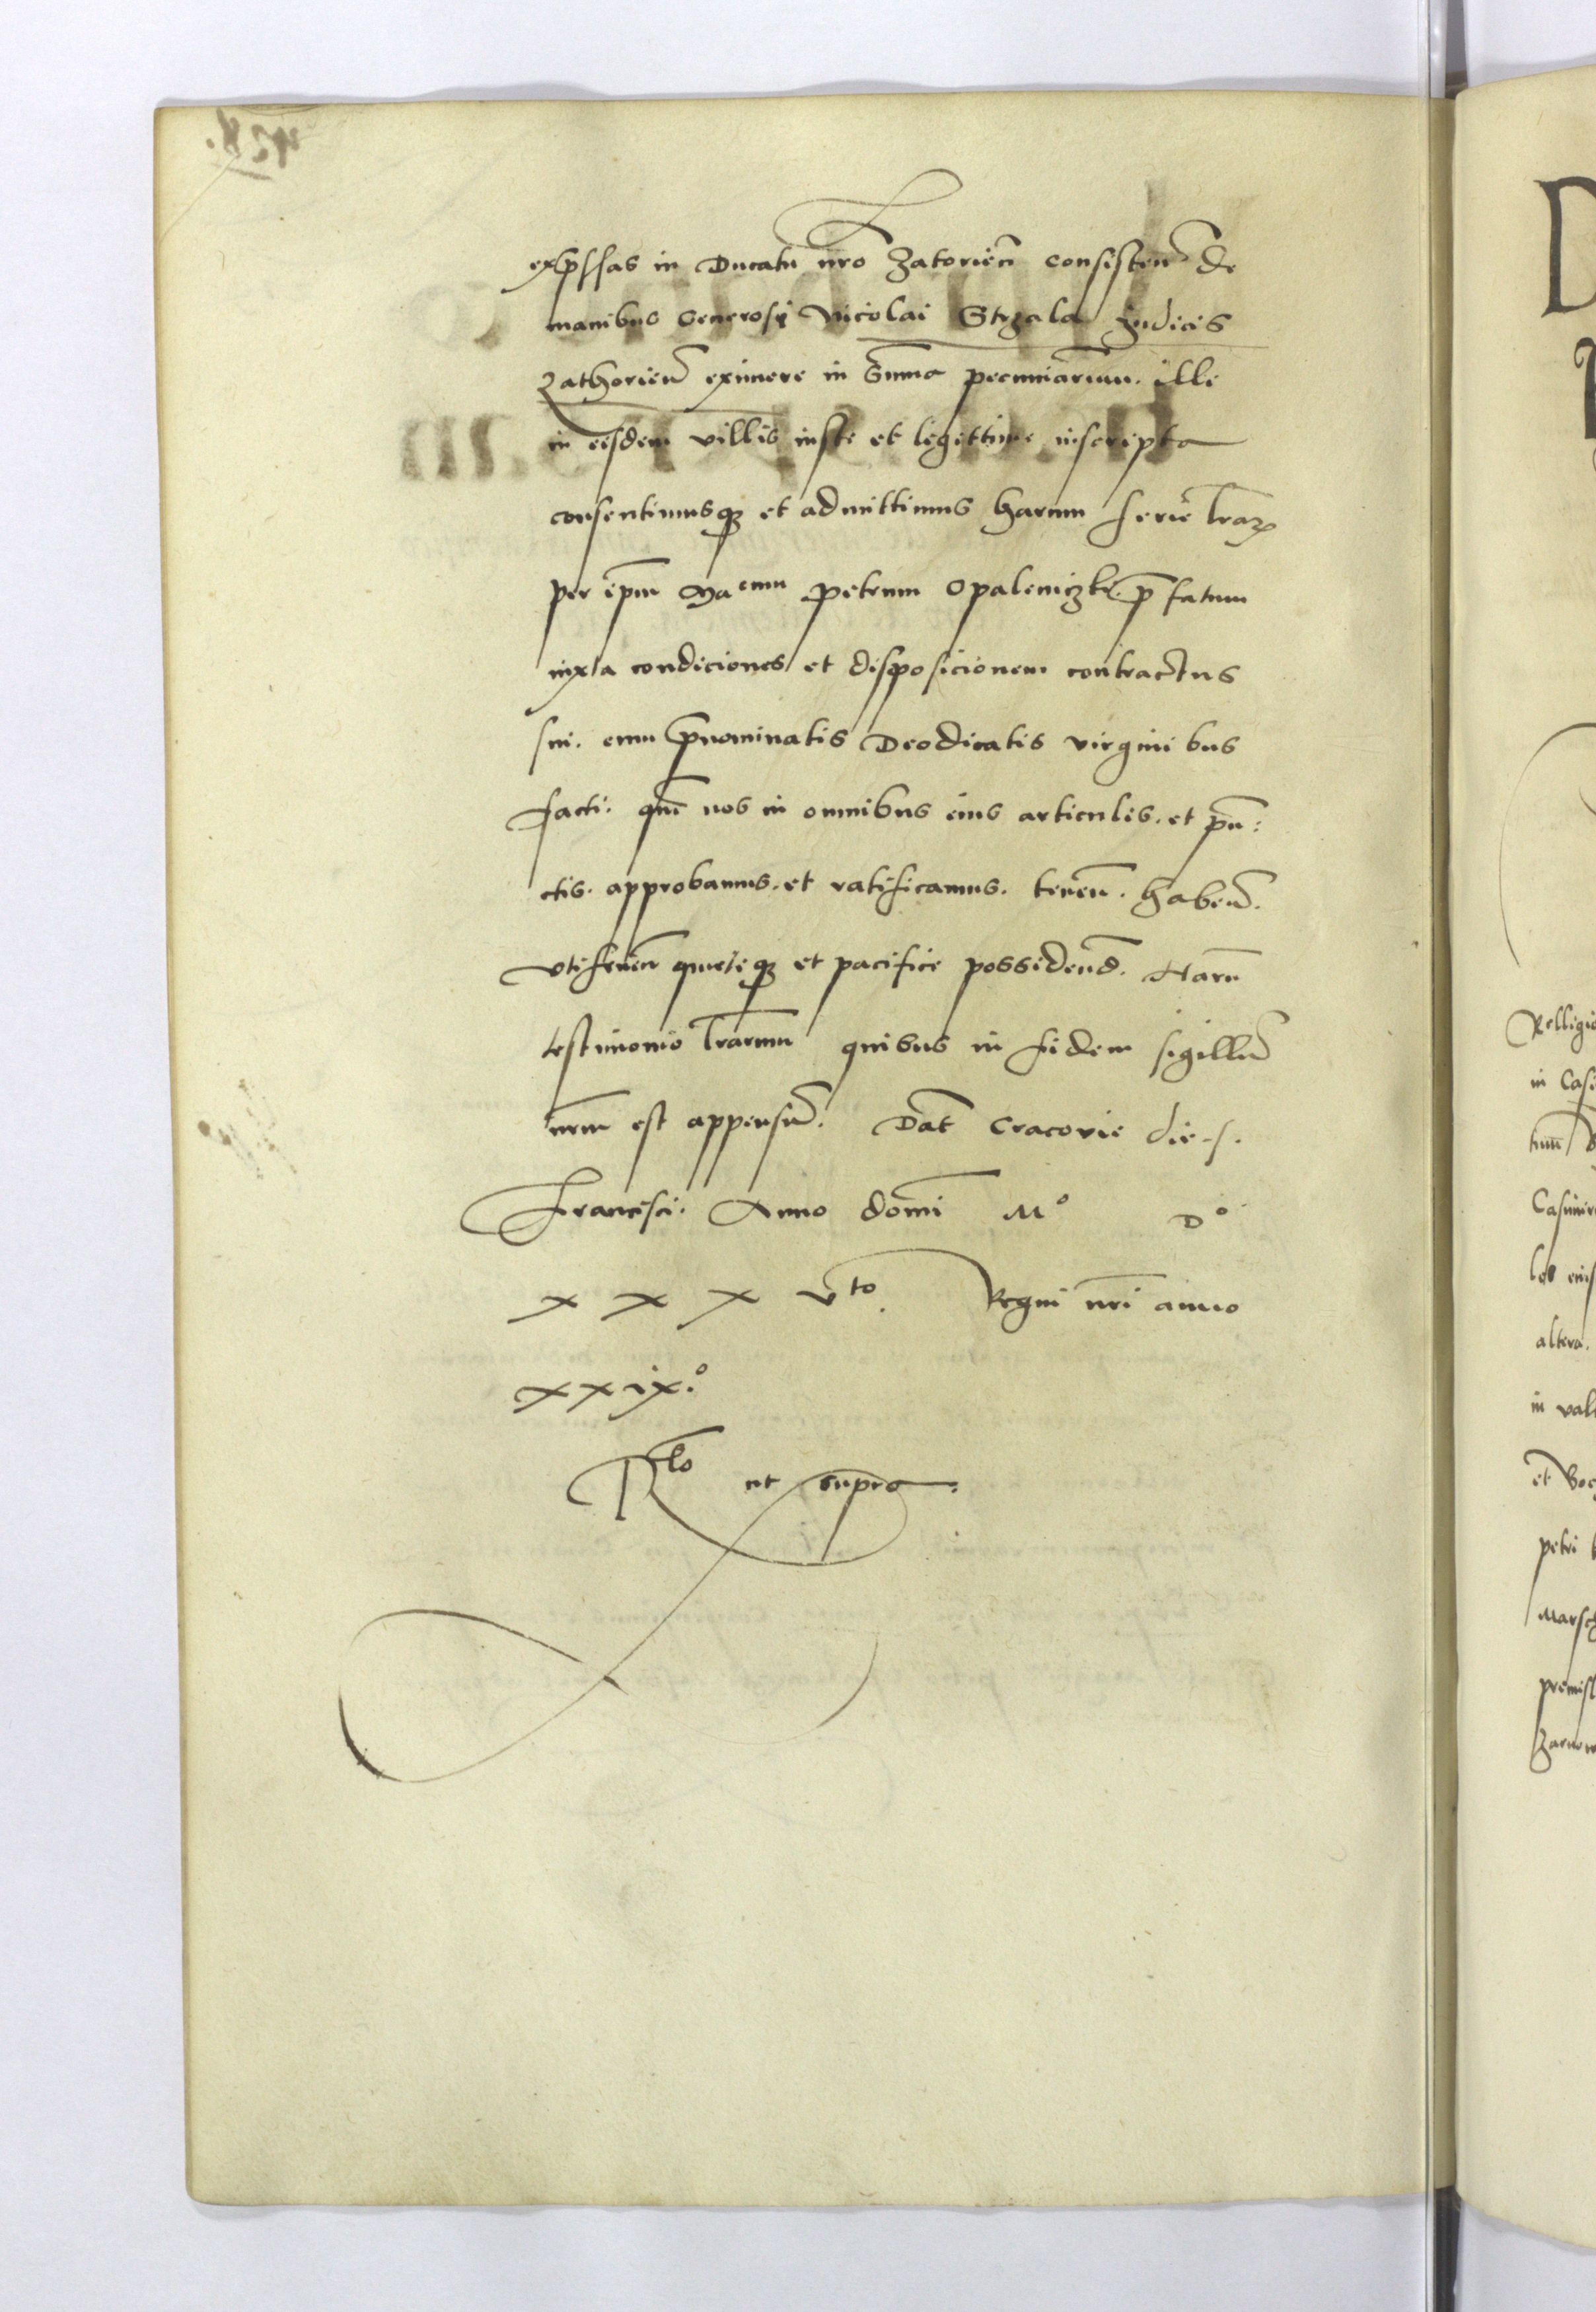 exp̄ssas in Ducatu nr̄o Zatorien̄ consisten̄ de
manibus Generosi Nicolai Strzala Judicis
Zathorien̄ eximere in Su̅ma pecuniarum. ille
in eisdem villis iuste et legittime inscripta
consentimusqꝫ et admittimus harum serie lr̄aꝝ
per ip̄m Ma cum Petrum Opaleniczki p̄fatum
iuxta condiciones et disposicionem contractus
sui. cum p̄nominatis Deodicatis virginibus
facti. quē nos in omnibus eius articulis. et pun:
ctis. approbamus. et ratificamus. tenen̄. haben̄.
vtifruen̄ quieteqꝫ et pacifice possidend̄. Harū
testimonio lr̄arum quibus in fidem sigillū
nrm̄ est appensū. Dat̄ Cracovie die s.
Francisci. Anno domī Mº Dº
x x x vto. Regni nrī anno
xxix.º
Rlo ut supra.
Relligio
in Casi
Casimir
altera.
in val
petri
Marsch
premisl